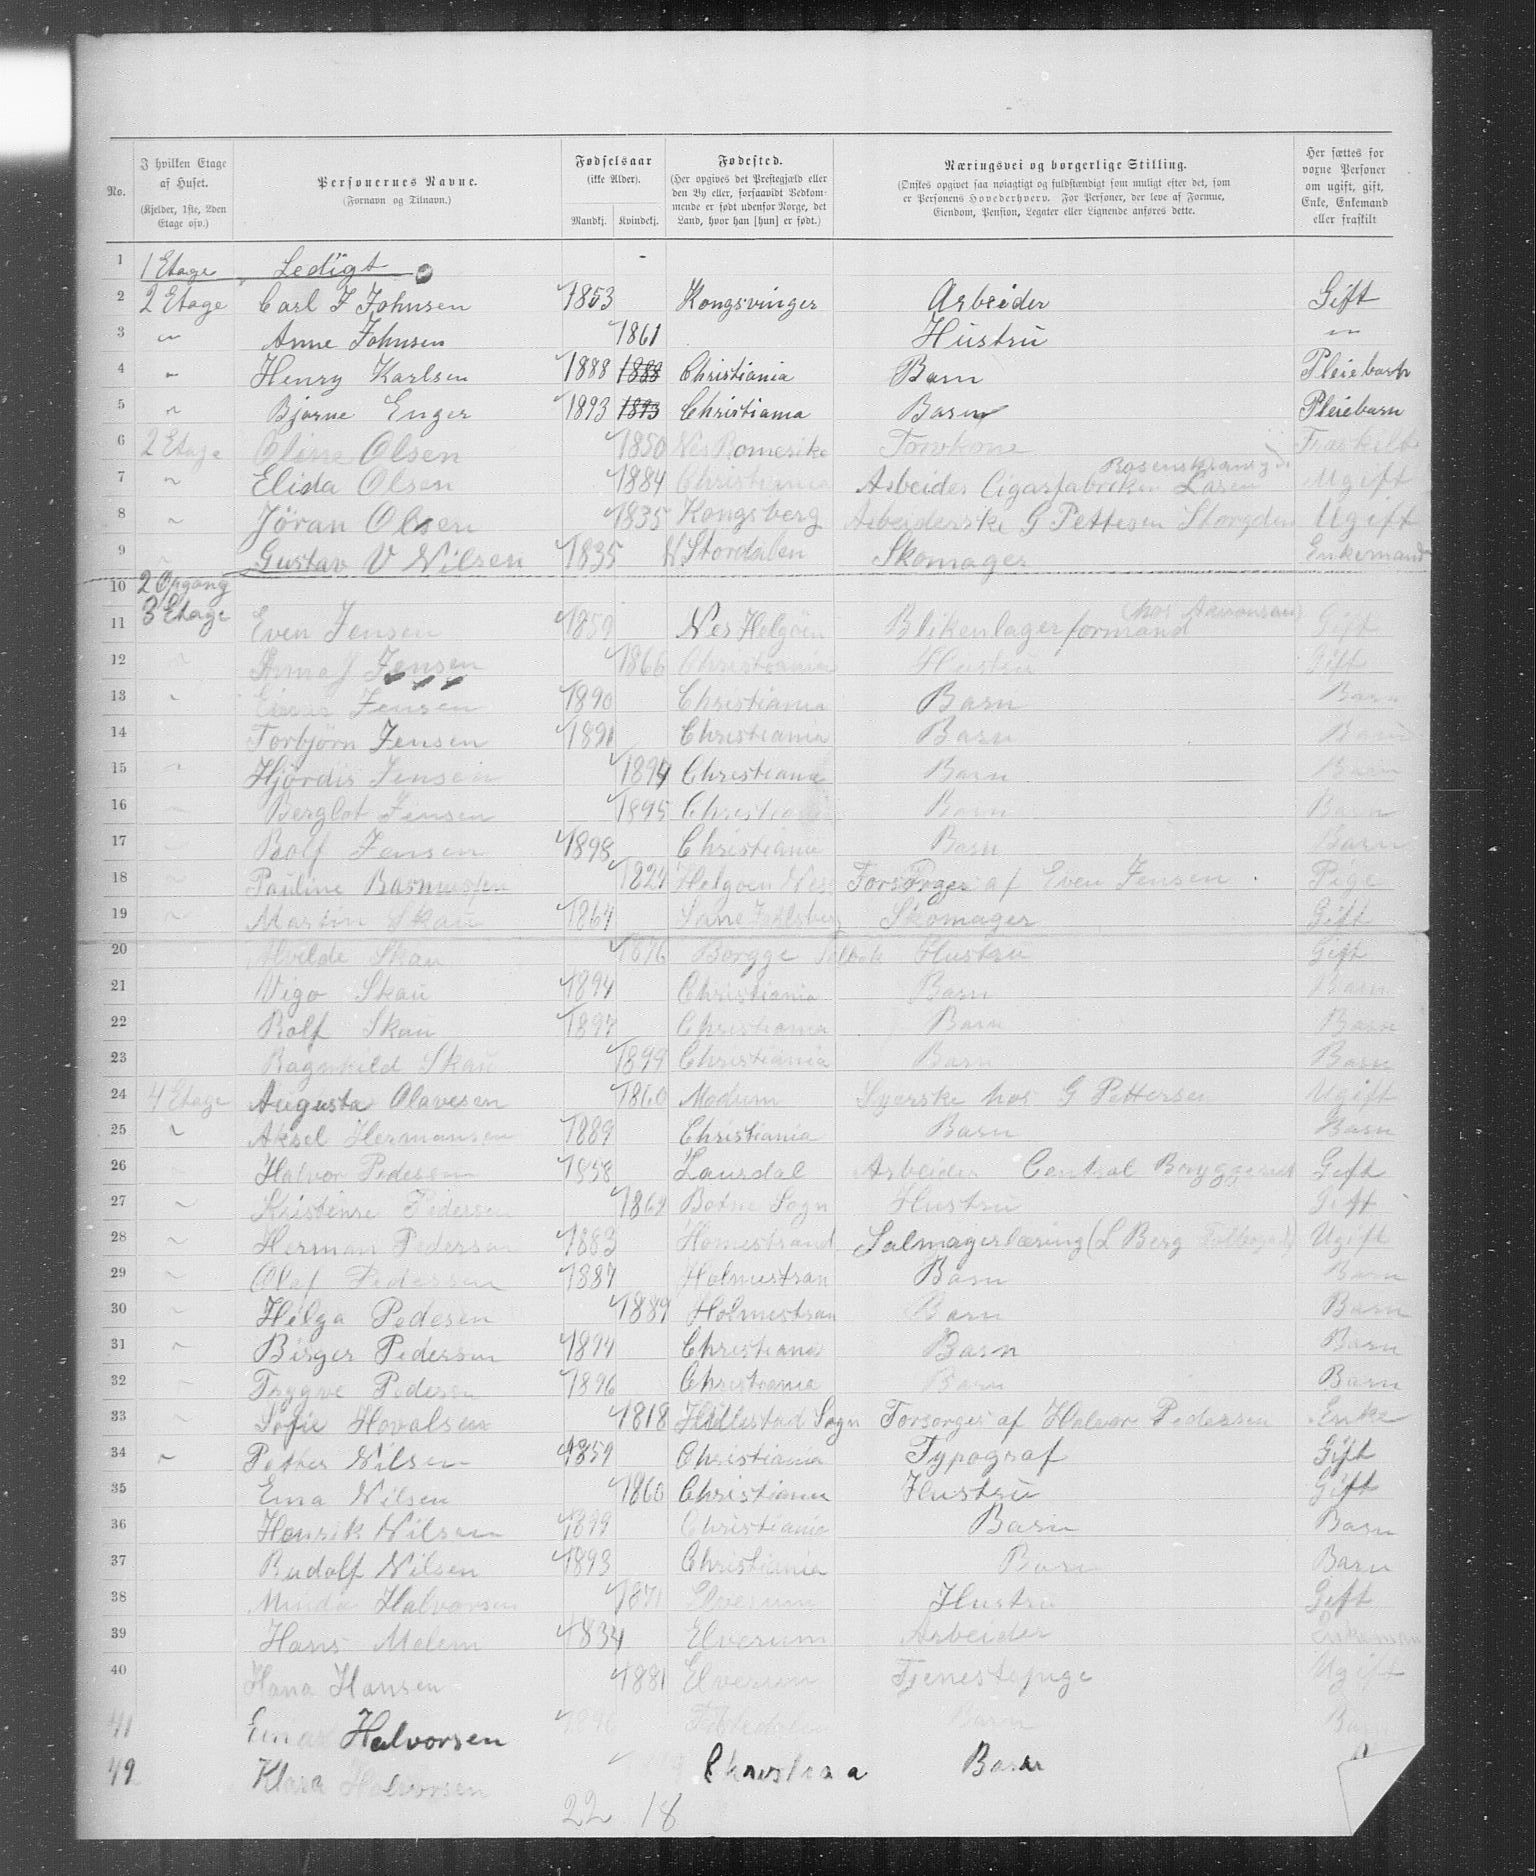 No. | I hvilken Etage af Huset. (Kjelder, 1ste, 2den Etage osv.) | Personernes Navne. (Fornavn og Tilnavn.) | Fødselsaar (ikke Alder). Mandkj. Kvindekj. | Fødested. (Her opgives det Prestegjæld eller den By eller, forsaavidt Vedkommende er født udenfor Norge, det Land, hvor han [hun] er født.) | Næringsvei og borgerlige Stilling. (Ønskes opgivet saa nøiagtigt og fuldstændigt som muligt efter det, som er Personens Hovederhverv. For Personer, der leve af Formue, Eiendom, Pension, Legater eller Lignende anføres dette. | Her sættes for voxne Personer om ugift, gift, Enke, Enkemand eller fraskilt
1 1 Etage Ledigt
2 2 Etage Carl J Johnsen 1853 Kongsvinger Arbeider Gift
3 " Anne Johnsen 1861 Hustru "
4 " Henry Karlsen 1888 1888 Christiania Barn Pleiebarn
5 " Bjarne Enger 1893 1893 Christiania Barn Pleiebarn
6 2 Etage Oline Olsen 1850 Nes Romerike Torvkone Fraskilt
7 " Elida Olsen 1884 Christiania Arbeider Cigarfabriken Larsen Ugift
8 " Jöran Olsen 1835 Kongsberg Arbeiderske G Pettesen Storgden Ugift
9 " Gustav V Nilsen 1835 N Stordalen Skomager Enkemand
10 2 Opgang
11 3 Etage Even Jensen 1859 Nes Helgöen Blikenlager formand Gift
12 " Anna J Jensen 1866 Christiania Hustru Gift
13 " Einar Jensen 1890 Christiania Barn Barn
14 Torbjörn Jensen 1891 Christiania Barn Barn
15 " Hjördis Jensen 1894 Christiania Barn Barn
16 " Berglot Jensen 1895 Christiania Barn Barn
17 " Rolf Jensen 1898 Christiania Barn Barn
18 " Pauline Rasmussen 1824 Helgöen Nes Forsörges af Even Jensen Pige
19 " Martin Skau 1864 Skomager Gift
20 Alvilde Skau 1876 Borgge Hustru Gift
21 Vigo Skau 1894 Christiania Barn Barn
22 Rolf Skau 1897 Christiania Barn Barn
23 Ragnhild Skau 1899 Christiania Barn Barn
24 4 Etage Augusta Olavesen 1860 Modum Syerske hos G Pettersen Ugift
25 " Aksel Hermansen 1889 Christiania Barn Barn
26 Halvor Pedersen 1858 Laurdal Arbeider Central Bryggeriet Gift
27 " Kristense Pedersen 1869 Botne Sogn Hustru Gift
28 " Herman Pedersen 1883 Homestrand Salmagerlæring (L Berg Ugift
29 " Olaf Pedersen 1887 Holmestran Barn Barn
30 " Helga Pedesen 1889 Holmestran Barn Barn
31 " Birger Pedersen 1894 Christiana Barn Barn
32 " Trygve Pedersen 1896 Christiania Barn Barn
33 " Sofie Hovalsen 1818 Hillestad Sogn Forsorges af Halvor Pedersen Enke
34 " Petter Nilsen 1859 Christiania Typograf Gift
35 Ema Nilsen 1860 Christiania Hustru Gift
36 Henrik Nilsen 1899 Christiania Barn Barn
37 Rudolf Nilsen 1893 Christiania Barn Barn
38 Minda Halvorsen 1871 Elverum Hustru Gift
39 Hans Melem 1834 Elverum Arbeider Enkeman
40 Hana Hansen 1881 Elverum Tjenestepige Ugift
41 Einar Halvorsen 1896 Barn Barn
42 Klara Halvorsen Christiaa Barn
22 18